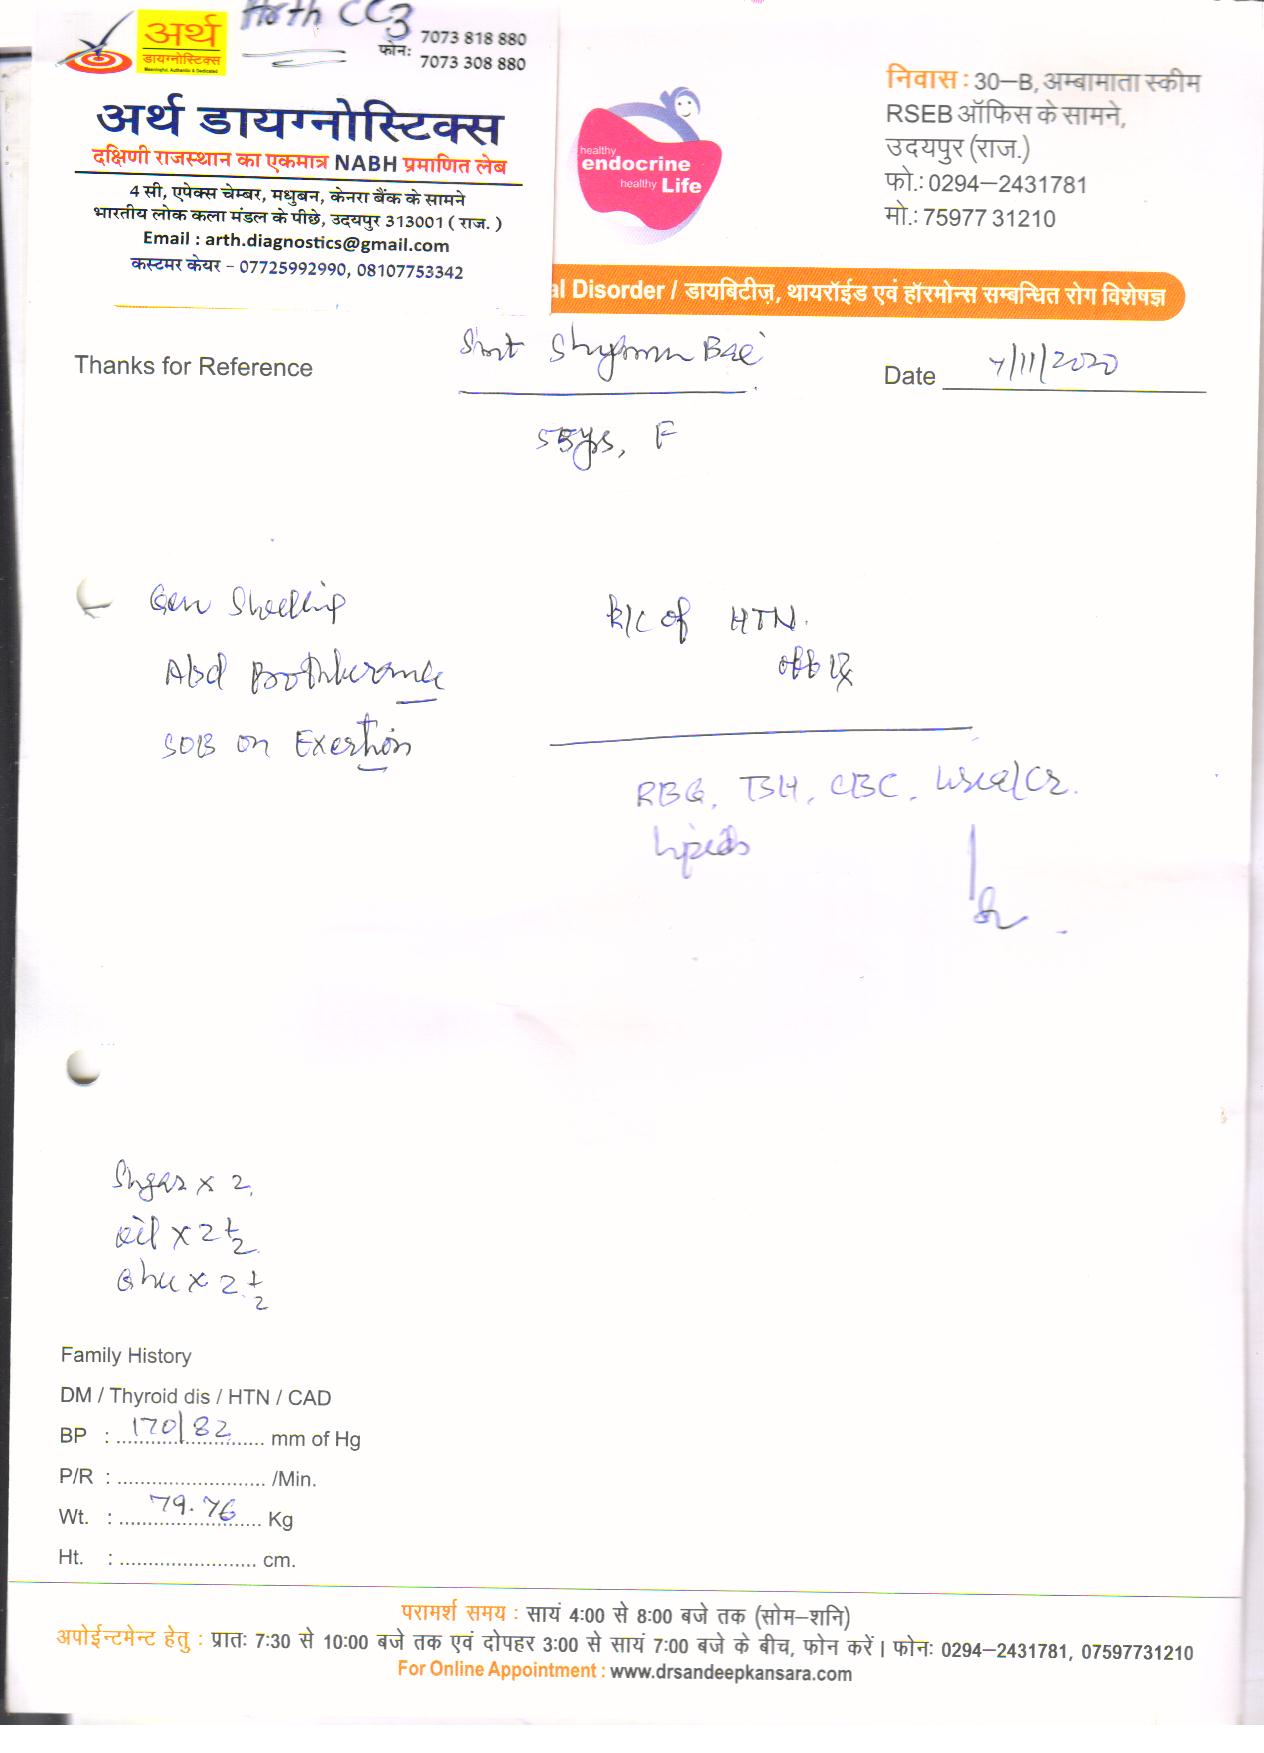 Arth CC3
अर्थ
डायग्नोस्टिक्स
Meaningful, Authentic & Dedicated
फोन: 7073 818 880
7073 308 880
अर्थ डायग्नोस्टिक्स
दक्षिणी राजस्थान का एकमात्र NABH प्रमाणित लेब
4 सी, एपेक्स चेम्बर, मधुबन, केनरा बैंक के सामने
भारतीय लोक कला मंडल के पीछे, उदयपुर 313001 ( राज. )
Email : arth.diagnostics@gmail.com
कस्टमर केयर - 07725992990, 08107753342
healthy
endocrine
healthy Life
निवास : 30-B, अम्बामाता स्कीम
RSEB ऑफिस के सामने,
उदयपुर (राज.)
फो.: 0294-2431781
मो.: 75977 31210
al Disorder / डायबिटीज़, थायरॉईड एवं हॉरमोन्स सम्बन्धित रोग विशेषज्ञ
Thanks for Reference
Smt Bai
Date 7/11/2020
55ys, F
Gen Swelling
Abd
SOB on Exertion
K/C of HTN.
off Rx
RBG, TSH, CBC, Urea/Cr.
Lipids
Sugar x 2
Oil x 2 1/2
Ghee x 2 1/2
Family History
DM / Thyroid dis / HTN / CAD
BP : 170/82 mm of Hg
P/R : /Min.
Wt. : 79.76 Kg
Ht. : cm.
परामर्श समय : सायं 4:00 से 8:00 बजे तक (सोम-शनि)
अपोईन्टमेन्ट हेतु : प्रातः 7:30 से 10:00 बजे तक एवं दोपहर 3:00 से सायं 7:00 बजे के बीच, फोन करें। फोनः 0294-2431781, 07597731210
For Online Appointment : www.drsandeepkansara.com